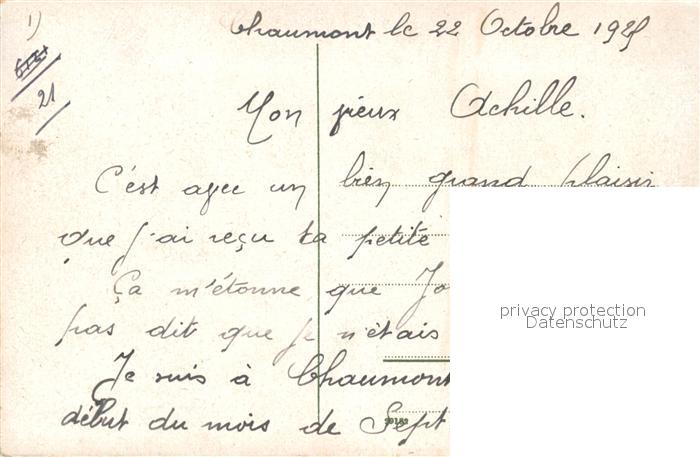 1)
Chaumont le 22 Octobre 1925
21
Mon vieux Achille.
C'est avec un bien grand plaisir
que j'ai reçu ta petite
Ça m'étonne que Jo
pas dit que je n'étais
Je suis à Chaumont
début du mois de Sept
privacy protection
Datenschutz